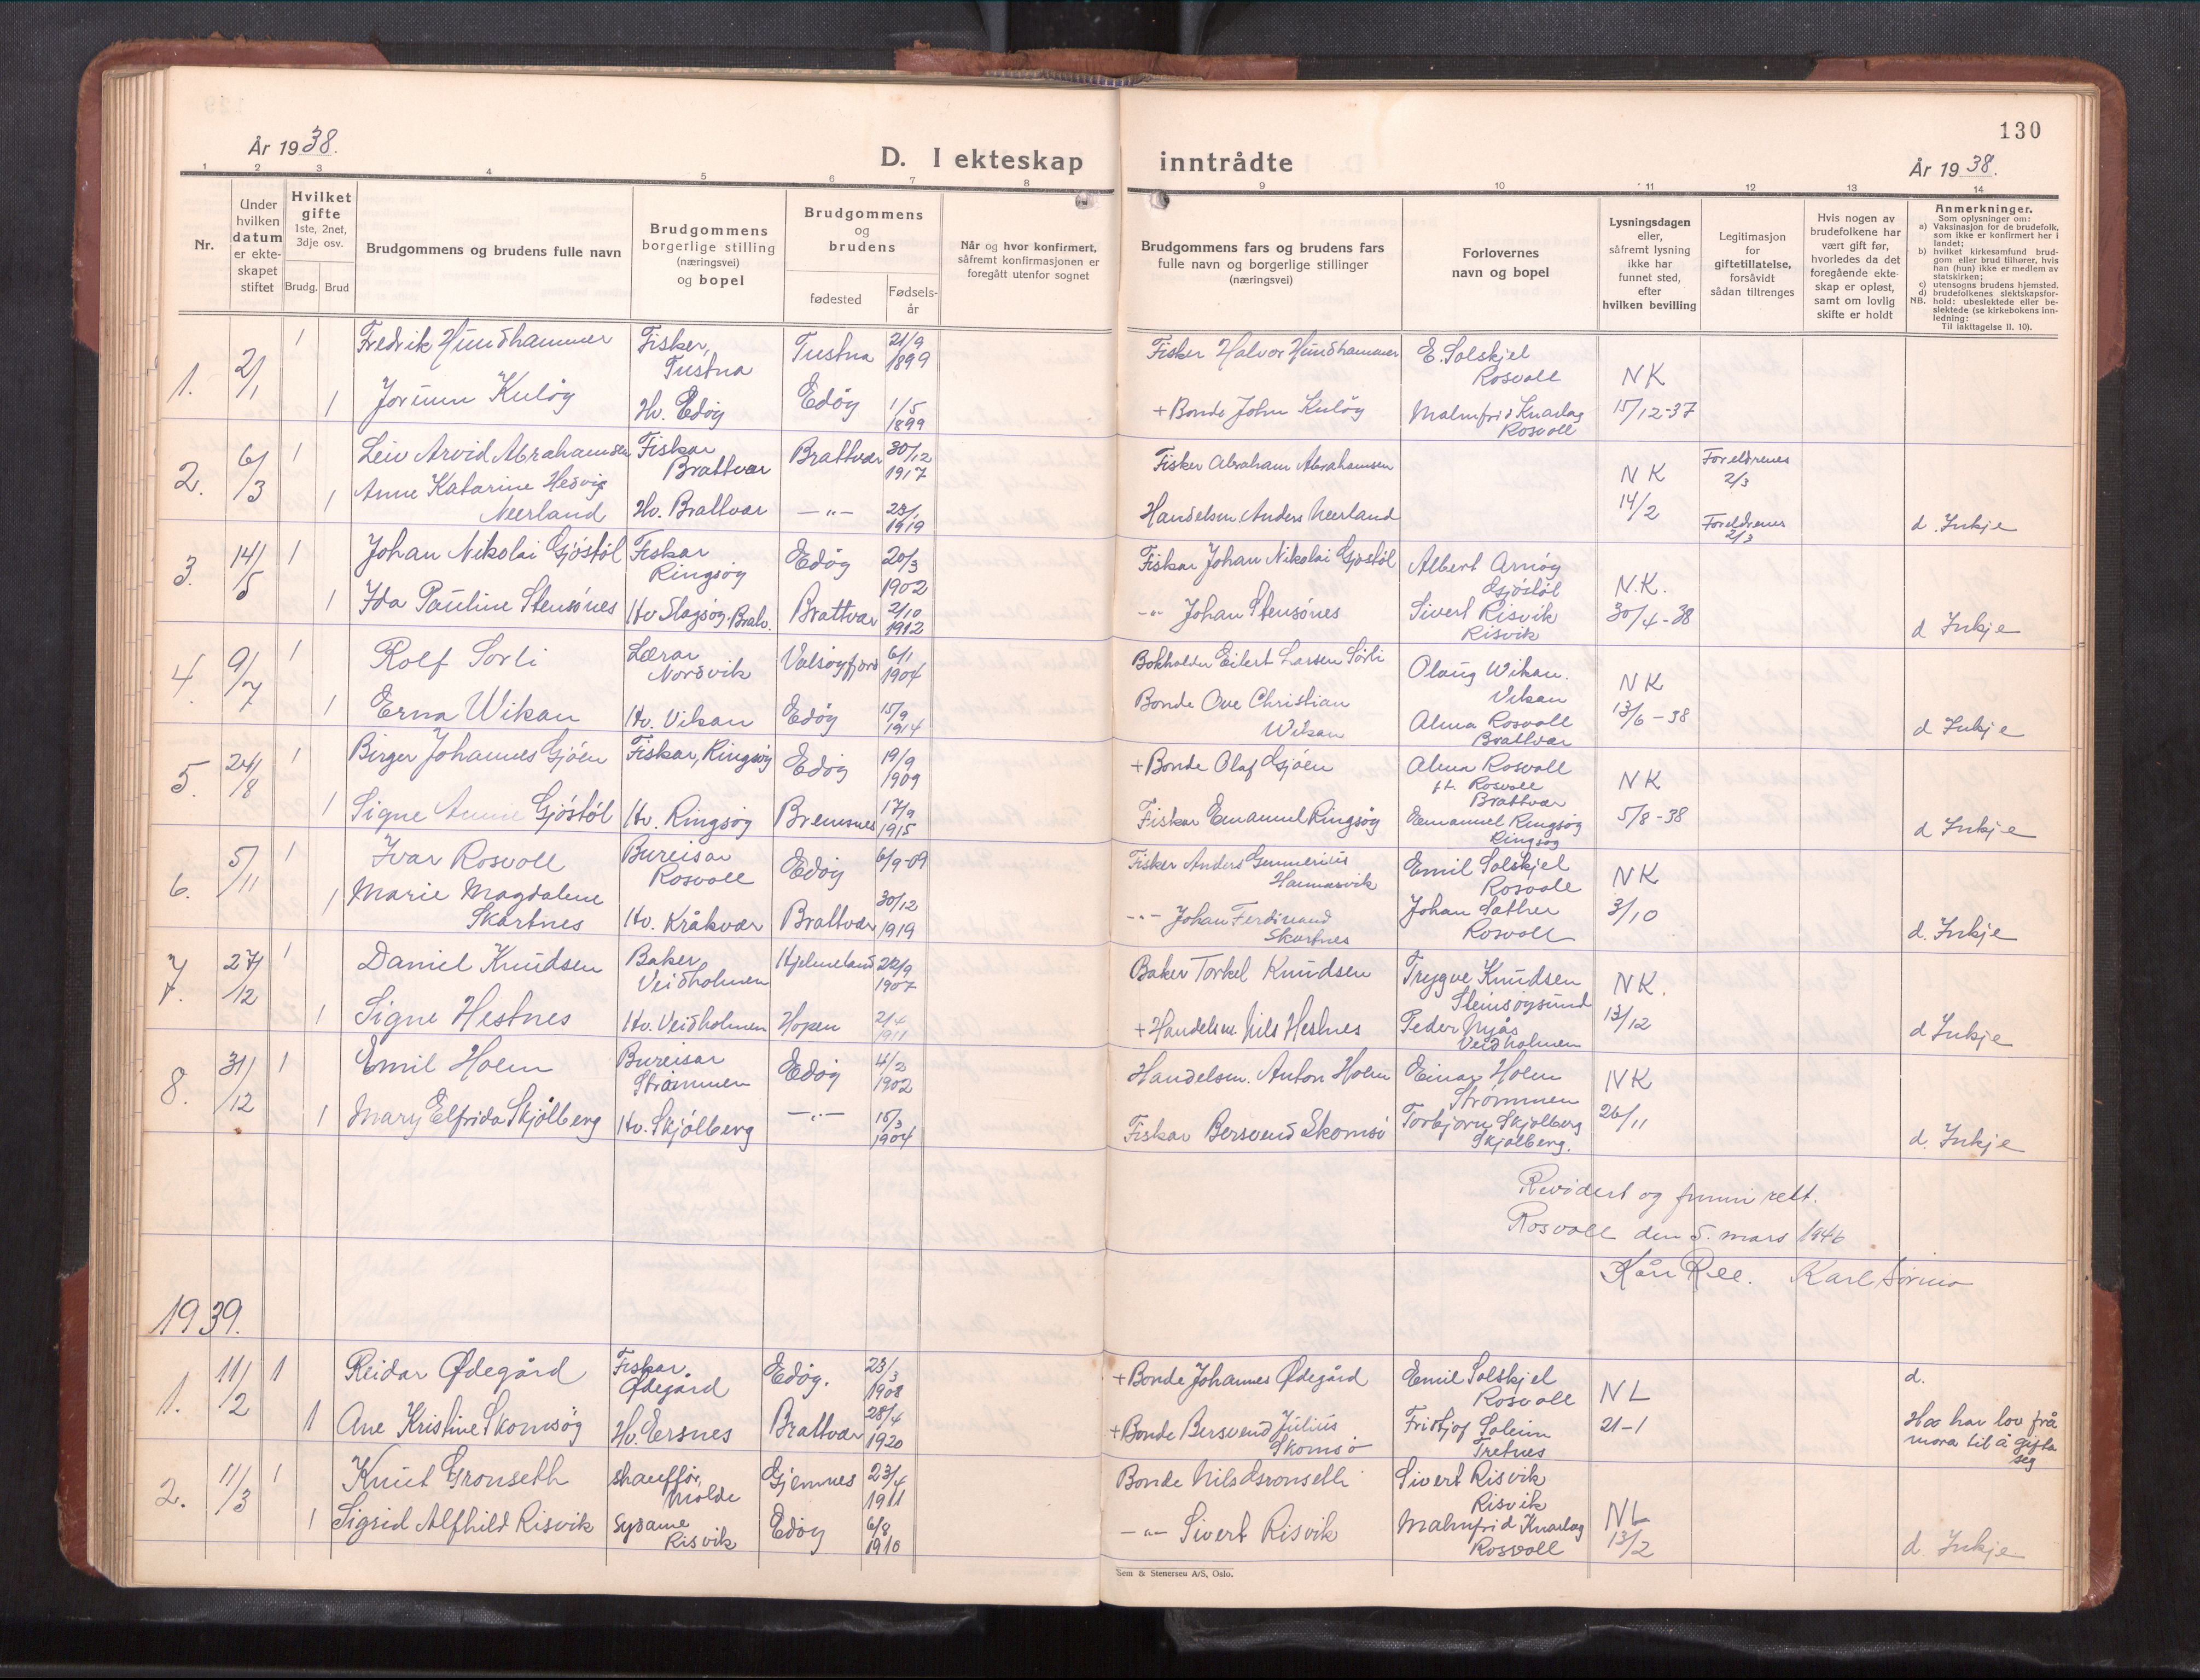 130
År 1938.
D. I ekteskap inntrådte
År 1938.
1 2 3 4 5 6 7 8 9 10 11 12 13 14
Nr.
Under hvilken datum er ekteskapet stiftet
Hvilket gifte
1ste, 2net, 3dje osv.
Brudg. Brud
Brudgommens og brudens fulle navn
Brudgommens borgerlige stilling (næringsvei) og bopel
Brudgommens og brudens
fødested
Fødselsår
Når og hvor konfirmert, såfremt konfirmasjonen er foregått utenfor sognet
Brudgommens fars og brudens fars fulle navn og borgerlige stillinger (næringsvei)
Forlovernes navn og bopel
Lysningsdagen eller, såfremt lysning ikke har funnet sted, efter hvilken bevilling
Legitimasjon for giftetillatelse, forsåvidt sådan tiltrenges
Hvis nogen av brudefolkene har vært gift før, hvorledes da det foregående ekteskap er opløst, samt om lovlig skifte er holdt
Anmerkninger.
Som oplysninger om:
a) Vaksinasjon for de brudefolk, som ikke er konfirmert her i landet;
b) hvilket kirkesamfund brudgom eller brud tilhører, hvis han (hun) ikke er medlem av statskirken;
c) utensogns brudens hjemsted.
d) brudefolkenes slektskapsforhold: ubeslektede eller beslektede (se kirkebokens innledning:
NB.
Til iakttagelse II. 10).
1. 2/1 1 Fredrik Hundhammer Fisker, Tustna Tustna 21/9 1899 Fisker Halvor Hundhammer E. Solskjel Rosvoll NK
1 Jorunn Kuløy Hv. Edøy Edøy 1/5 1899 + Bonde John Kuløy Malmfrid Knarlag Rosvoll 15/12-37
2. 6/3 1 Leiv Arvid Abrahamsen Fiskar Brattvær Brattvær 30/12 1917 Fisker Abraham Abrahamsen NK Foreldrenes 2/3
1 Anne Katarine Hedvig Neerland Hv. Brattvær —"— 23/1 1919 Handelsm. Anders Neerland 14/2 Foreldrenes 2/3 d. Inkje
3. 14/5 1 Johan Nikolai Gjøstøl Fiskar Ringsøy Edøy 20/3 1902 Fiskar Johan Nikolai Gjøstøl Albert Arnøy Gjøstøl N.K.
1 Ida Pauline Stensønes Hv Slagsøy. Bratv. Brattvær 2/10 1912 -"- Johan Stensønes Sivert Risvik Risvik 30/4-38 d Inkje
4. 9/7 1 Rolf Sorli Lærar Nordvik Valsøyfjord 6/1 1904 Bokholder Eilert Larsen Sørli Olaug Wikan. Vikan NK
1 Erna Wikan Hv. Vikan Edøy 15/9 1914 Bonde Ove Christian Wikan Alma Rosvoll Brattvær 13/6-38 d Inkje
5. 24/8 1 Birger Johannes Gjøen Fiskar, Ringsøy Edøy 19/9 1909 + Bonde Olaf Gjøen Alma Rosvoll Rosvoll Brattvær NK
1 Signe Anne Gjøstøl Hv. Ringsøy Bremsnes 17/9 1915 Fiskar Emanuel Ringsøy Emanuel Ringsøy Ringsøy 5/8-38 d Inkje
6. 5/11 1 Ivar Rosvoll Bureisar Rosvoll Edøy 6/9-09 Fisker Anders Gunnerius Hamnasvik Emil Solskjel Rosvoll NK
1 Marie Magdalene Skartnes Hv. Kråkvær Brattvær 30/12 1919 -"- Johan Ferdinand Skartnes Johan Sæther Rosvoll 3/10 d. Inkje
7. 27/12 1 Daniel Knudsen Baker Veidholmen Hjelmeland 22/9 1907 Baker Torkel Knudsen Trygve Knudsen Steinsøysund NK.
1 Signe Hestnes Hv. Veidholmen Hopen 2/4 1911 + Handelsm. Nils Hestnes Peder Myås Veidholmen 13/12 d Inkje
8. 31/12 1 Emil Holm Bureisar Strømmen Edøy 4/2 1902 Handelsm. Anton Holm Einar Holm Strømmen NK
1 Mary Elfrida Skjølberg Hv. Skjølberg —"— 15/3 1904 Fiskar Bersvend Skomsø Torbjørn Skjølberg Skjølberg. 26/11 d. Inkje
Revidert og funni rett.
Rosvoll den 5. mars 1946
Kåre Ree. Karl Sørmo
1939.
1. 11/2 1 Reidar Ødegård Fiskar Ødegård Edøy. 23/3 1908 + Bonde Johannes Ødegård Emil Solskjel Rosvoll NL d.
1 Ane Kristine Skomsøy Hv. Ersnes Brattvær 28/4 1920 + Bonde Bersvend Julius Skomsø Fridtjof Soleim Tretnes 21-1 Ho har lov frå mora til å gifta seg
2. 11/3 1 Knut Gronseth shauffør, Molde Gjemnes 23/4 1911 Bonde Nils Gronseth Sivert Risvik Risvik NL
1 Sigrid Alfhild Risvik Sydame Risvik Edøy 6/8 1910 —"— Sivert Risvik Malmfrid Knarlag Rosvoll 13/2 d. Inkje
Sem & Stenersen A/S, Oslo.